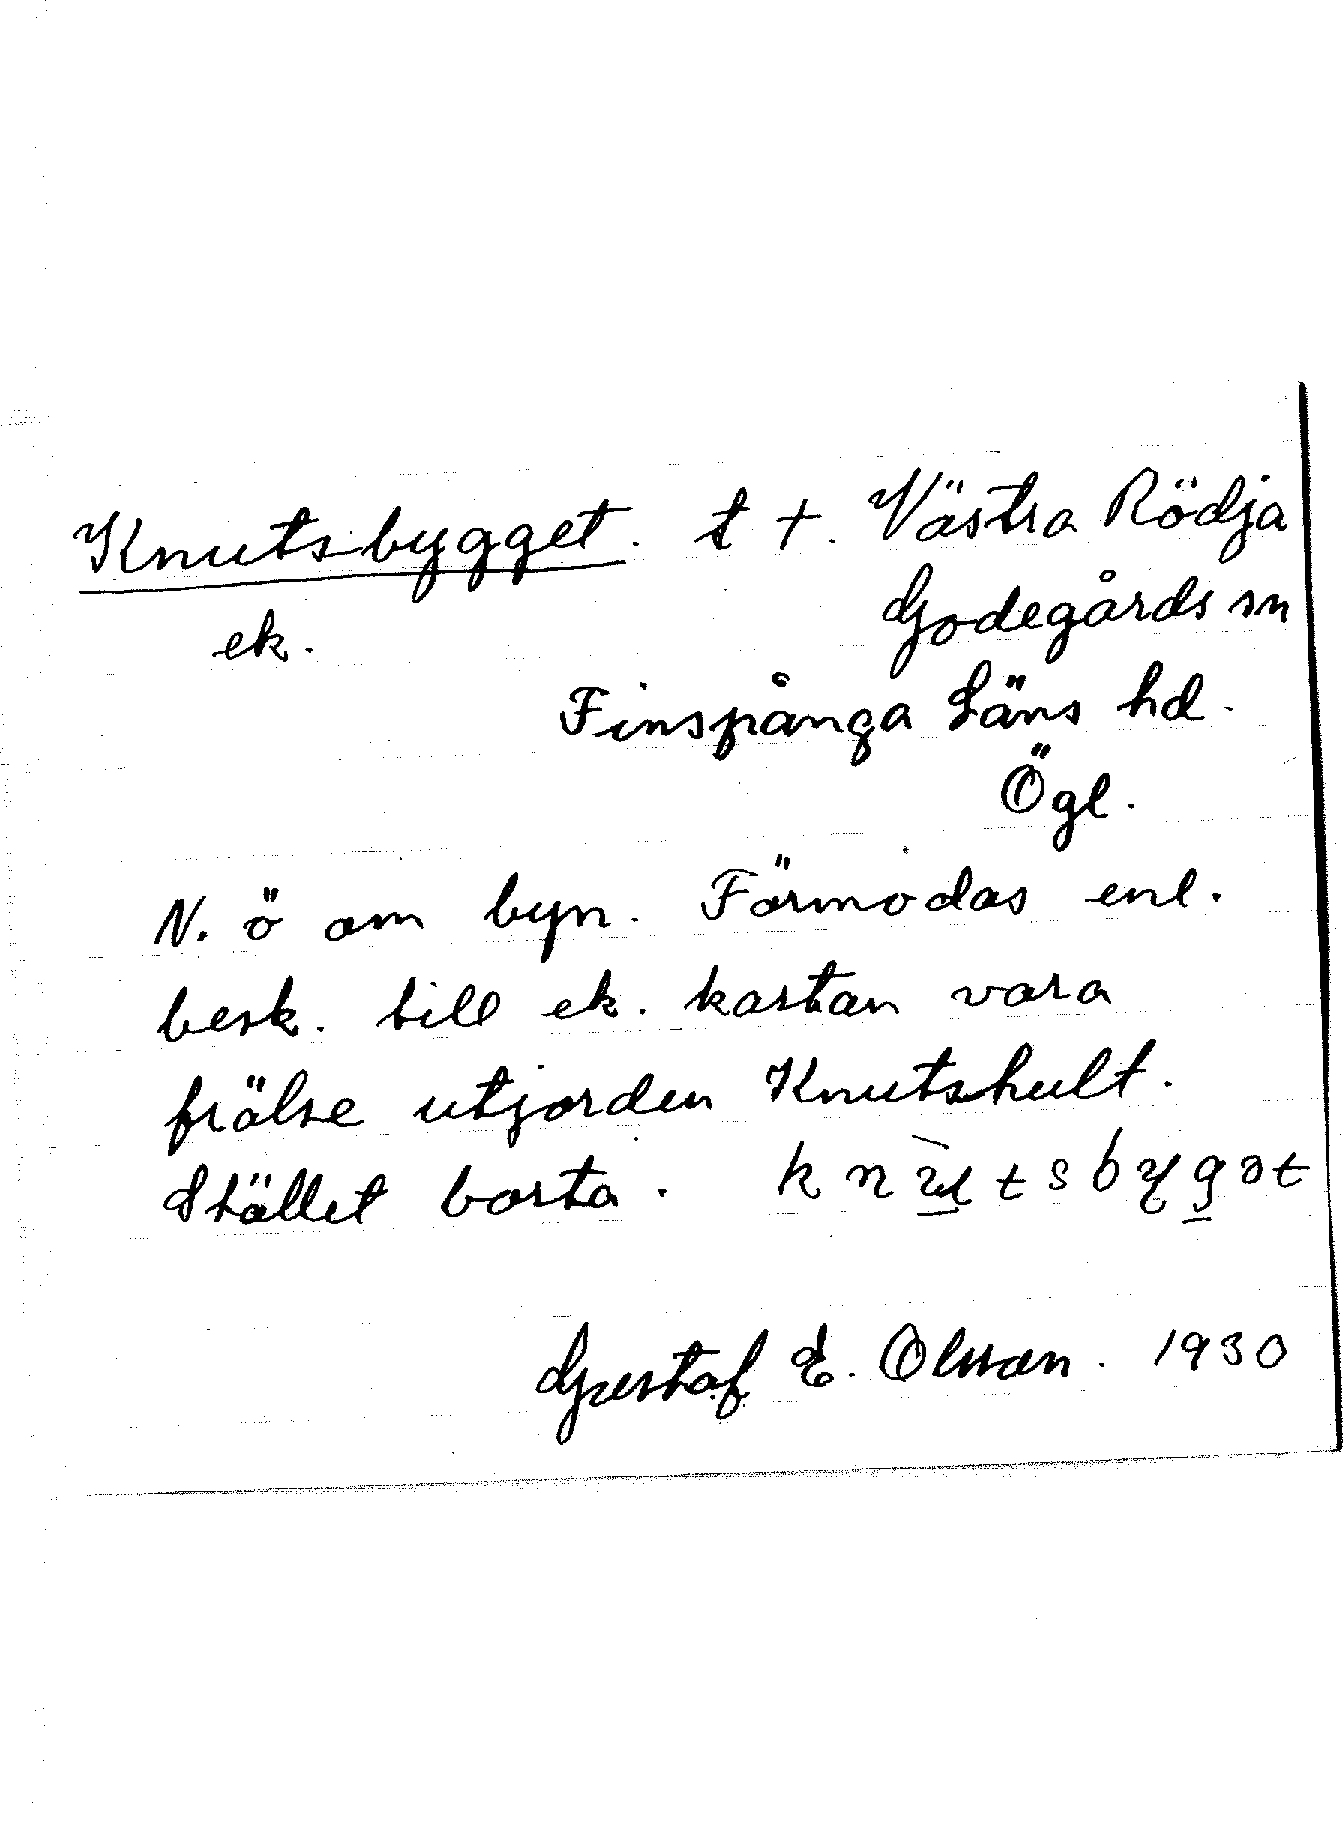 Knutsbygget. t †. Västra Rödja
ek. Godegårds sn
Finspånga Läns hd.
Ögl.
N. ö om byn. Förmodas enl.
besk. till ek. kartan vara
frälse utjorden Knutshult.
Stället borta.
Gustaf E. Olsson. 1930